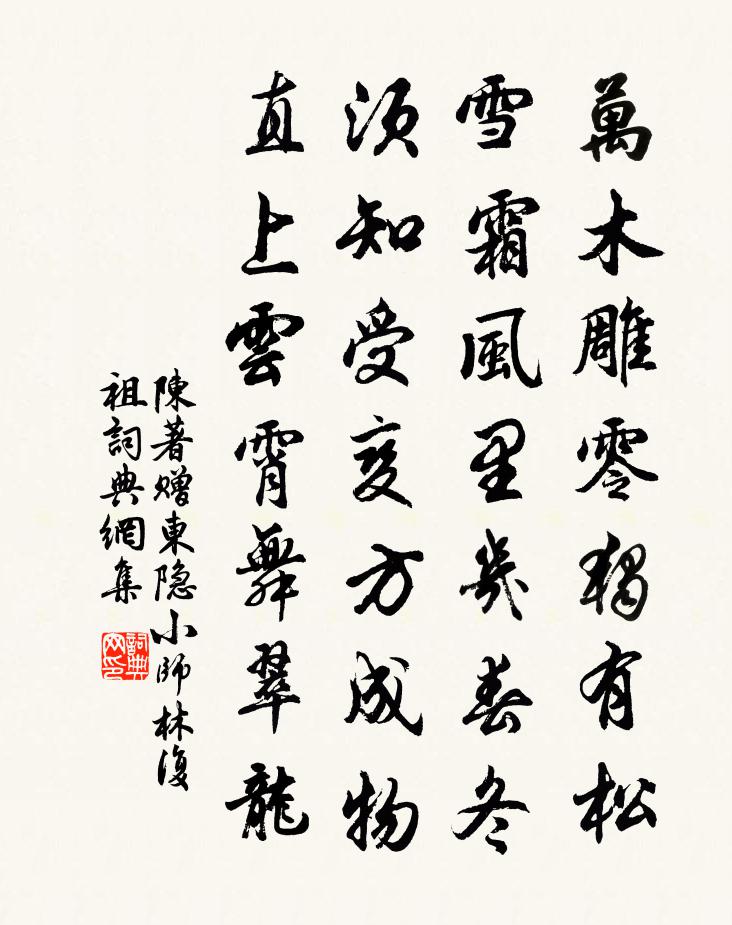 萬木雕零獨有松
雪霜風里幾春冬
須知受變方成物
直上雲霄舞翠龍
陳著贈東隐小師林復
祖詞典網集
詞典网印